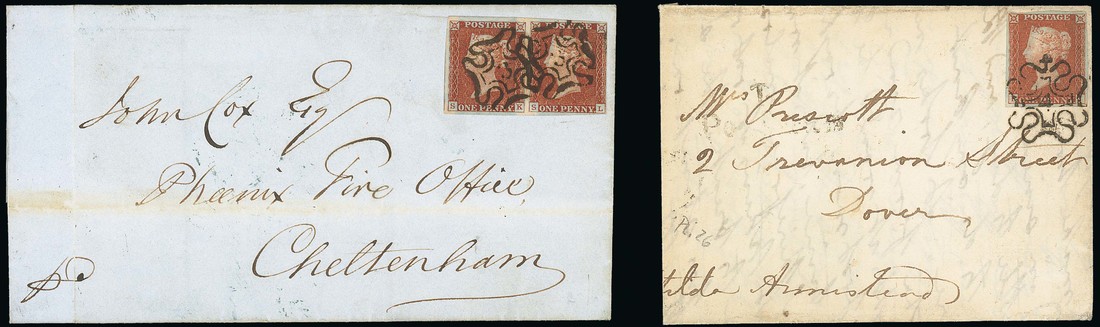 POSTAGE POSTAGE
S ONE PENNY K S ONE PENNY L
John Cox Esq
Phœnix Fire Office,
Cheltenham
POSTAGE
Mrs Prescott
2 Trevanion Street
Dover
ilda Armistead